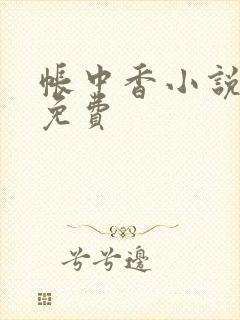 帳中香小說
免費
兮兮邊